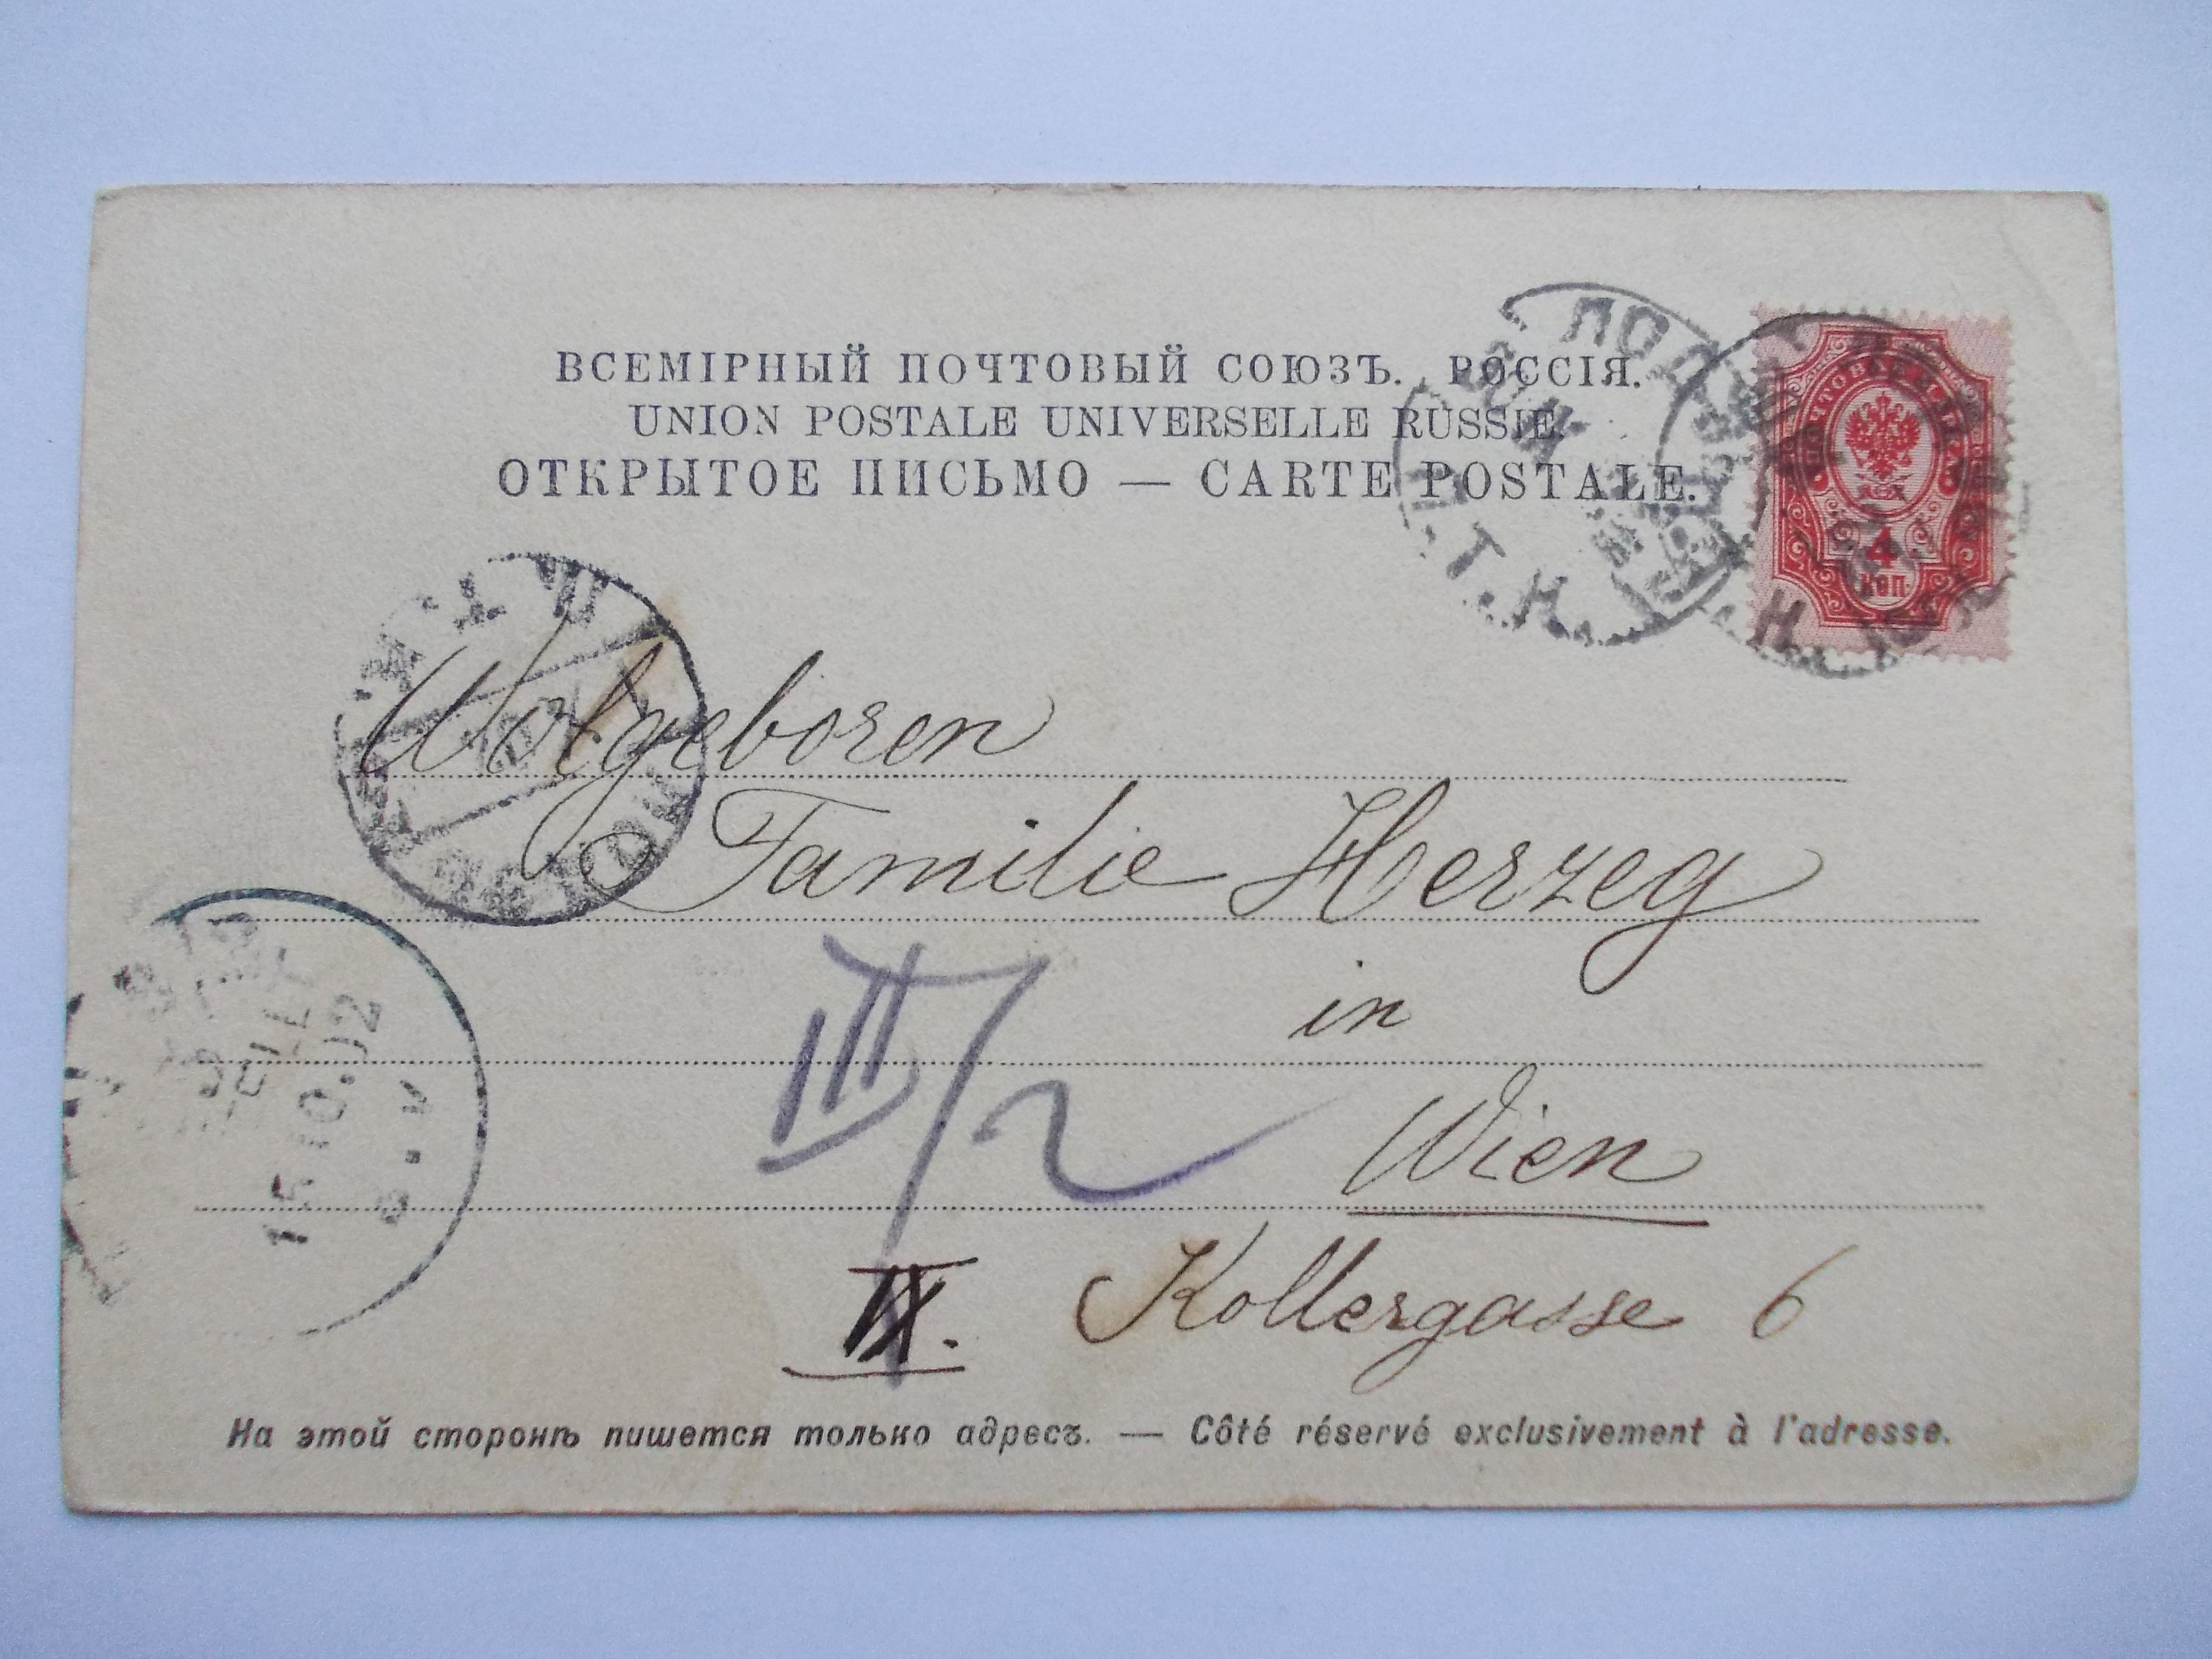 ВСЕМІРНЫЙ ПОЧТОВЫЙ СОЮЗЪ. РОССІЯ.
UNION POSTALE UNIVERSELLE RUSSIE.
ОТКРЫТОЕ ПИСЬМО — CARTE POSTALE.
4
КОП.
Wolgeboren
Familie Herzeg
in
Wien
III/2
IX. Kollergasse 6
На этой сторонѣ пишется только адресъ. — Côté réservé exclusivement à l'adresse.